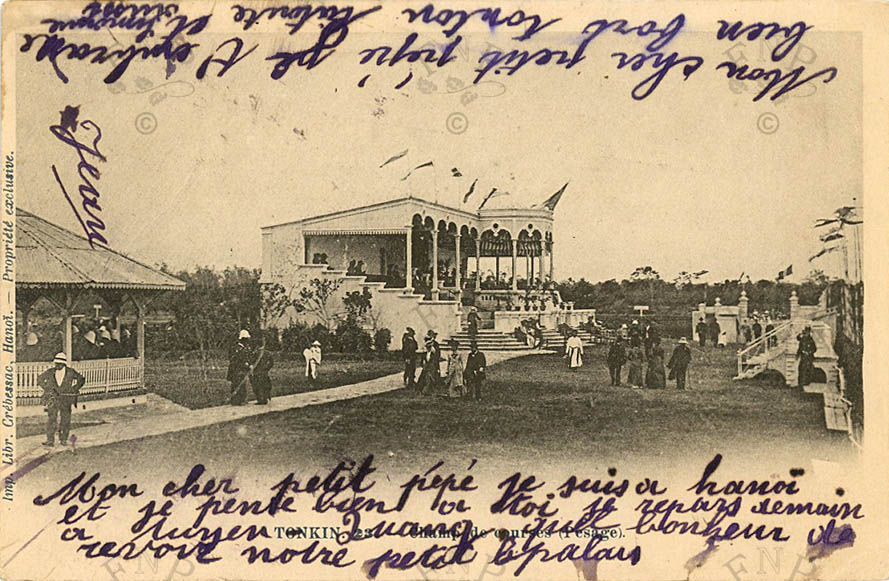 Mon cher petit pépé je t embrasse
bien fort tonton tatoute et
Jean
Imp. Libr. Crébessac, Hanoï. — Propriété exclusive.
Mon cher petit pépé je suis a hanoï
et je pense bien a toi je repars demain
a tuyen Quang quel bonheur de
revoir notre petit
TONKIN Champ de courses (Pesage).
FNP
©